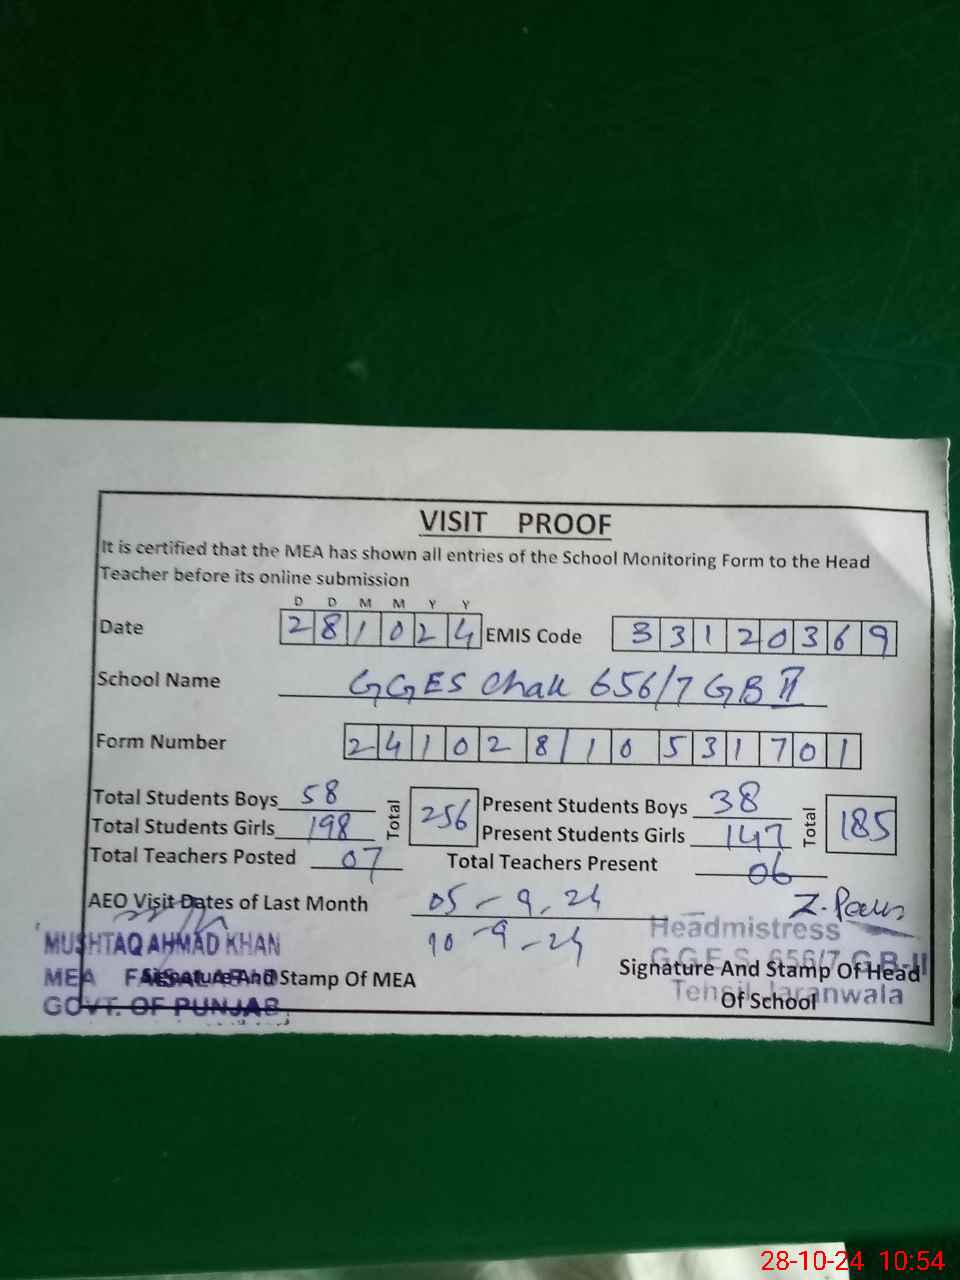 VISIT PROOF
It is certified that the MEA has shown all entries of the School Monitoring Form to the Head
Teacher before its online submission
D D M M Y Y
Date 281024 EMIS Code 33120369
School Name GGES Chak 656/7 GB II
Form Number 241028110531701
Total Students Boys 58 Total 256 Present Students Boys 38 Total 185
Total Students Girls 198 Present Students Girls 147
Total Teachers Posted 07 Total Teachers Present 06
AEO Visit Dates of Last Month 05-9.24
10-9-24
MUSHTAQ AHMAD KHAN
MEA FAISALABAD
GOVT. OF PUNJAB
Signature And Stamp Of MEA
Headmistress
G.G.E.S. 656/7 G.B-II
Tehsil Jaranwala
Signature And Stamp Of Head
Of School
28-10-24 10:54